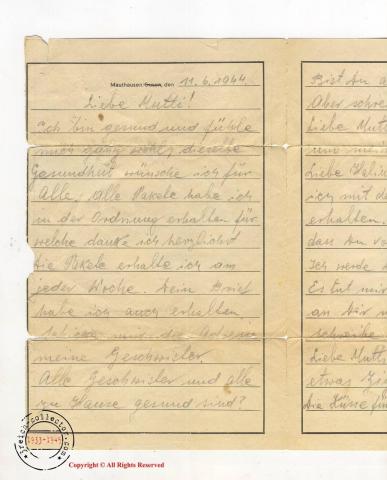 Mauthausen Gusen, den 11.6.1944.
Liebe Mutti!
Ich bin gesund und fühle
mich ganz wohl dieselbe
Gesundheit wünsche ich für
Alle, alle Pakele habe ich
in der Ordnung erhalten für
welche danke ich herzlichst
die Pakele erhalte ich am
jeder Woche. Dein Brief
habe ich auch erhalten.
mir die
meine Geschwister.
Alle Geschwister und alle
zu Hause gesund sind?
Bist Du
Aber schre
Liebe Mut
und mei
Liebe
ich mit d
erhalten.
dass Du vo
Ich werde
Es tut mir
an Dir
schreibe
Liebe Mutt
etwas
die Küsse für
reich-collector.com
1933-1945
Copyright © All Rights Reserved